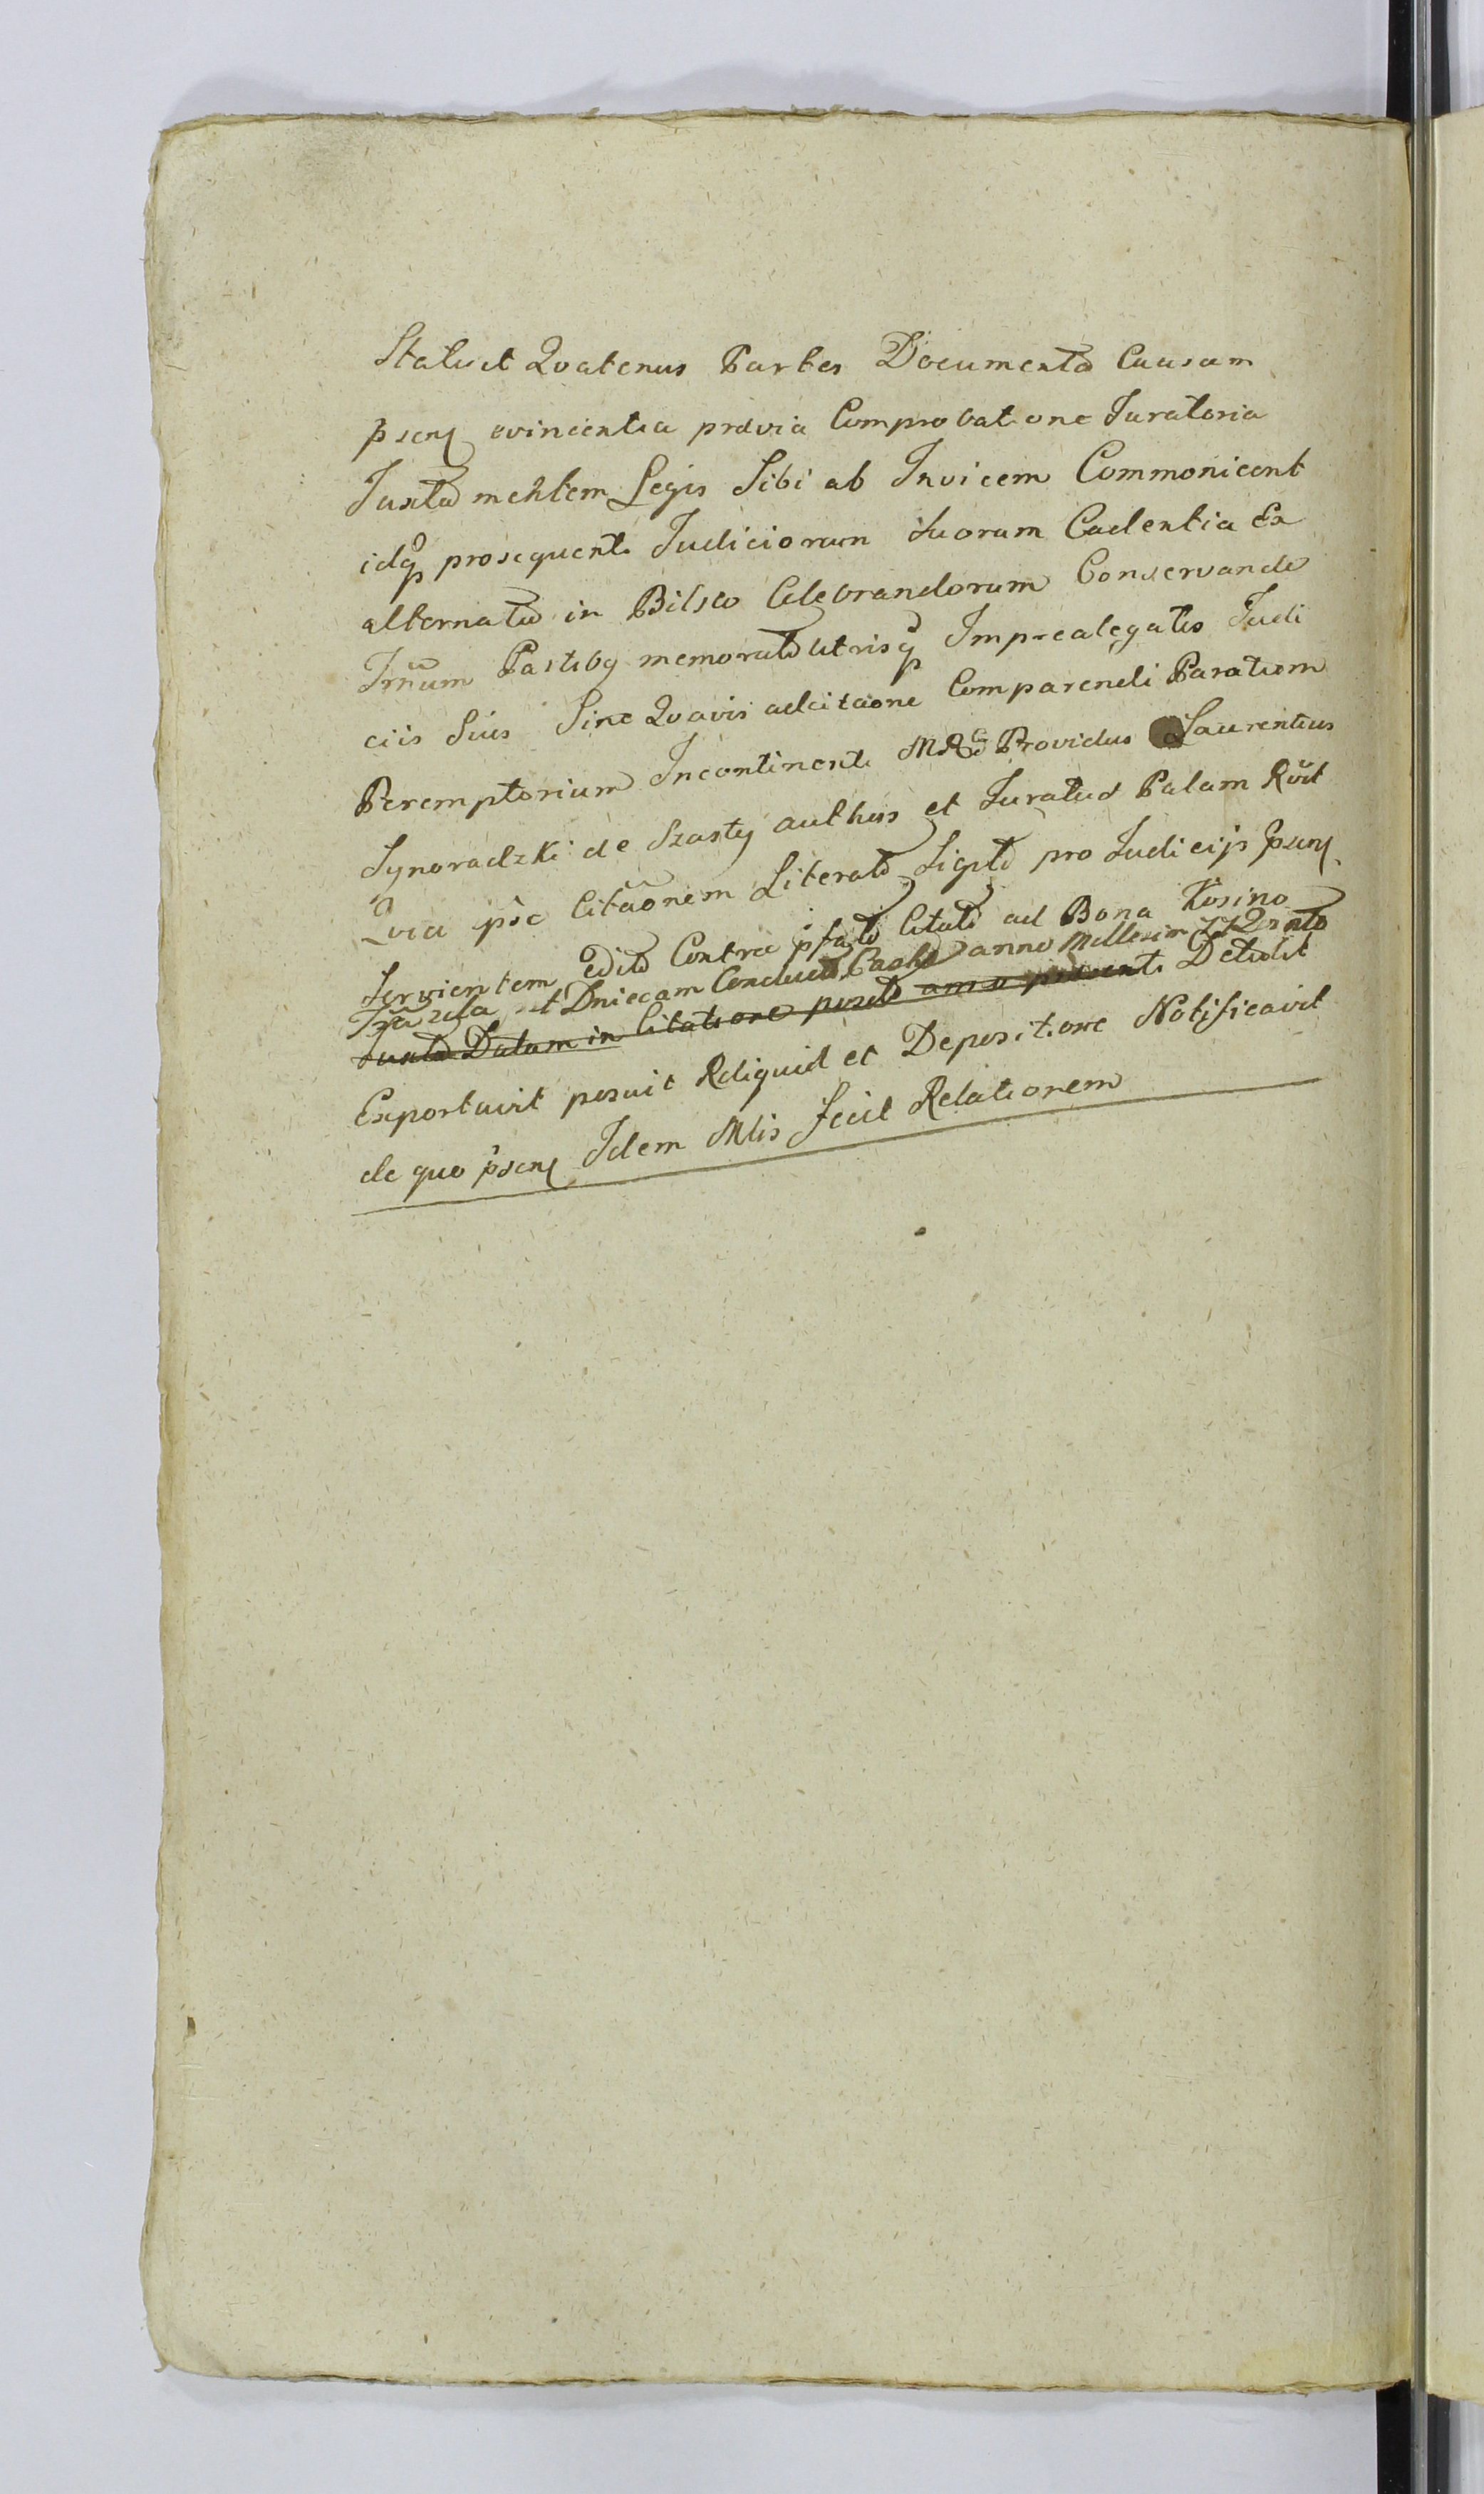 Statuit Quatenus Partes Documenta Causam
pñsen evincentia prævia Comprobatione Juratoria
Juxta mentem Legis Sibi ab Invicem Commonicent
idq prosequenti Judiciorum suorum Cadentia Ex
alternata in Bilsco Celebrandorum Conservande
Trñum Partibq memorat utrisq Imprealegatis Judi
ciis Suis Sine Quavis adcitaone Comparendi Paratum
Peremptorium Incontinenti Providus Laurentius
Synoradzki de Szasty authus et Juratus Palam Rvit
Qvia pse Citaonem Literat Sigil pro Judicijs psen
Servientem edit Contra pfat Citat ad Bona Kosino
et Dniecam anno Millesim
Juxta Datam in Citatione Detulit
Exportavit posuit Reliquid et Depositione Notificavit
de quo psen Idem Mlis fecit Relationem